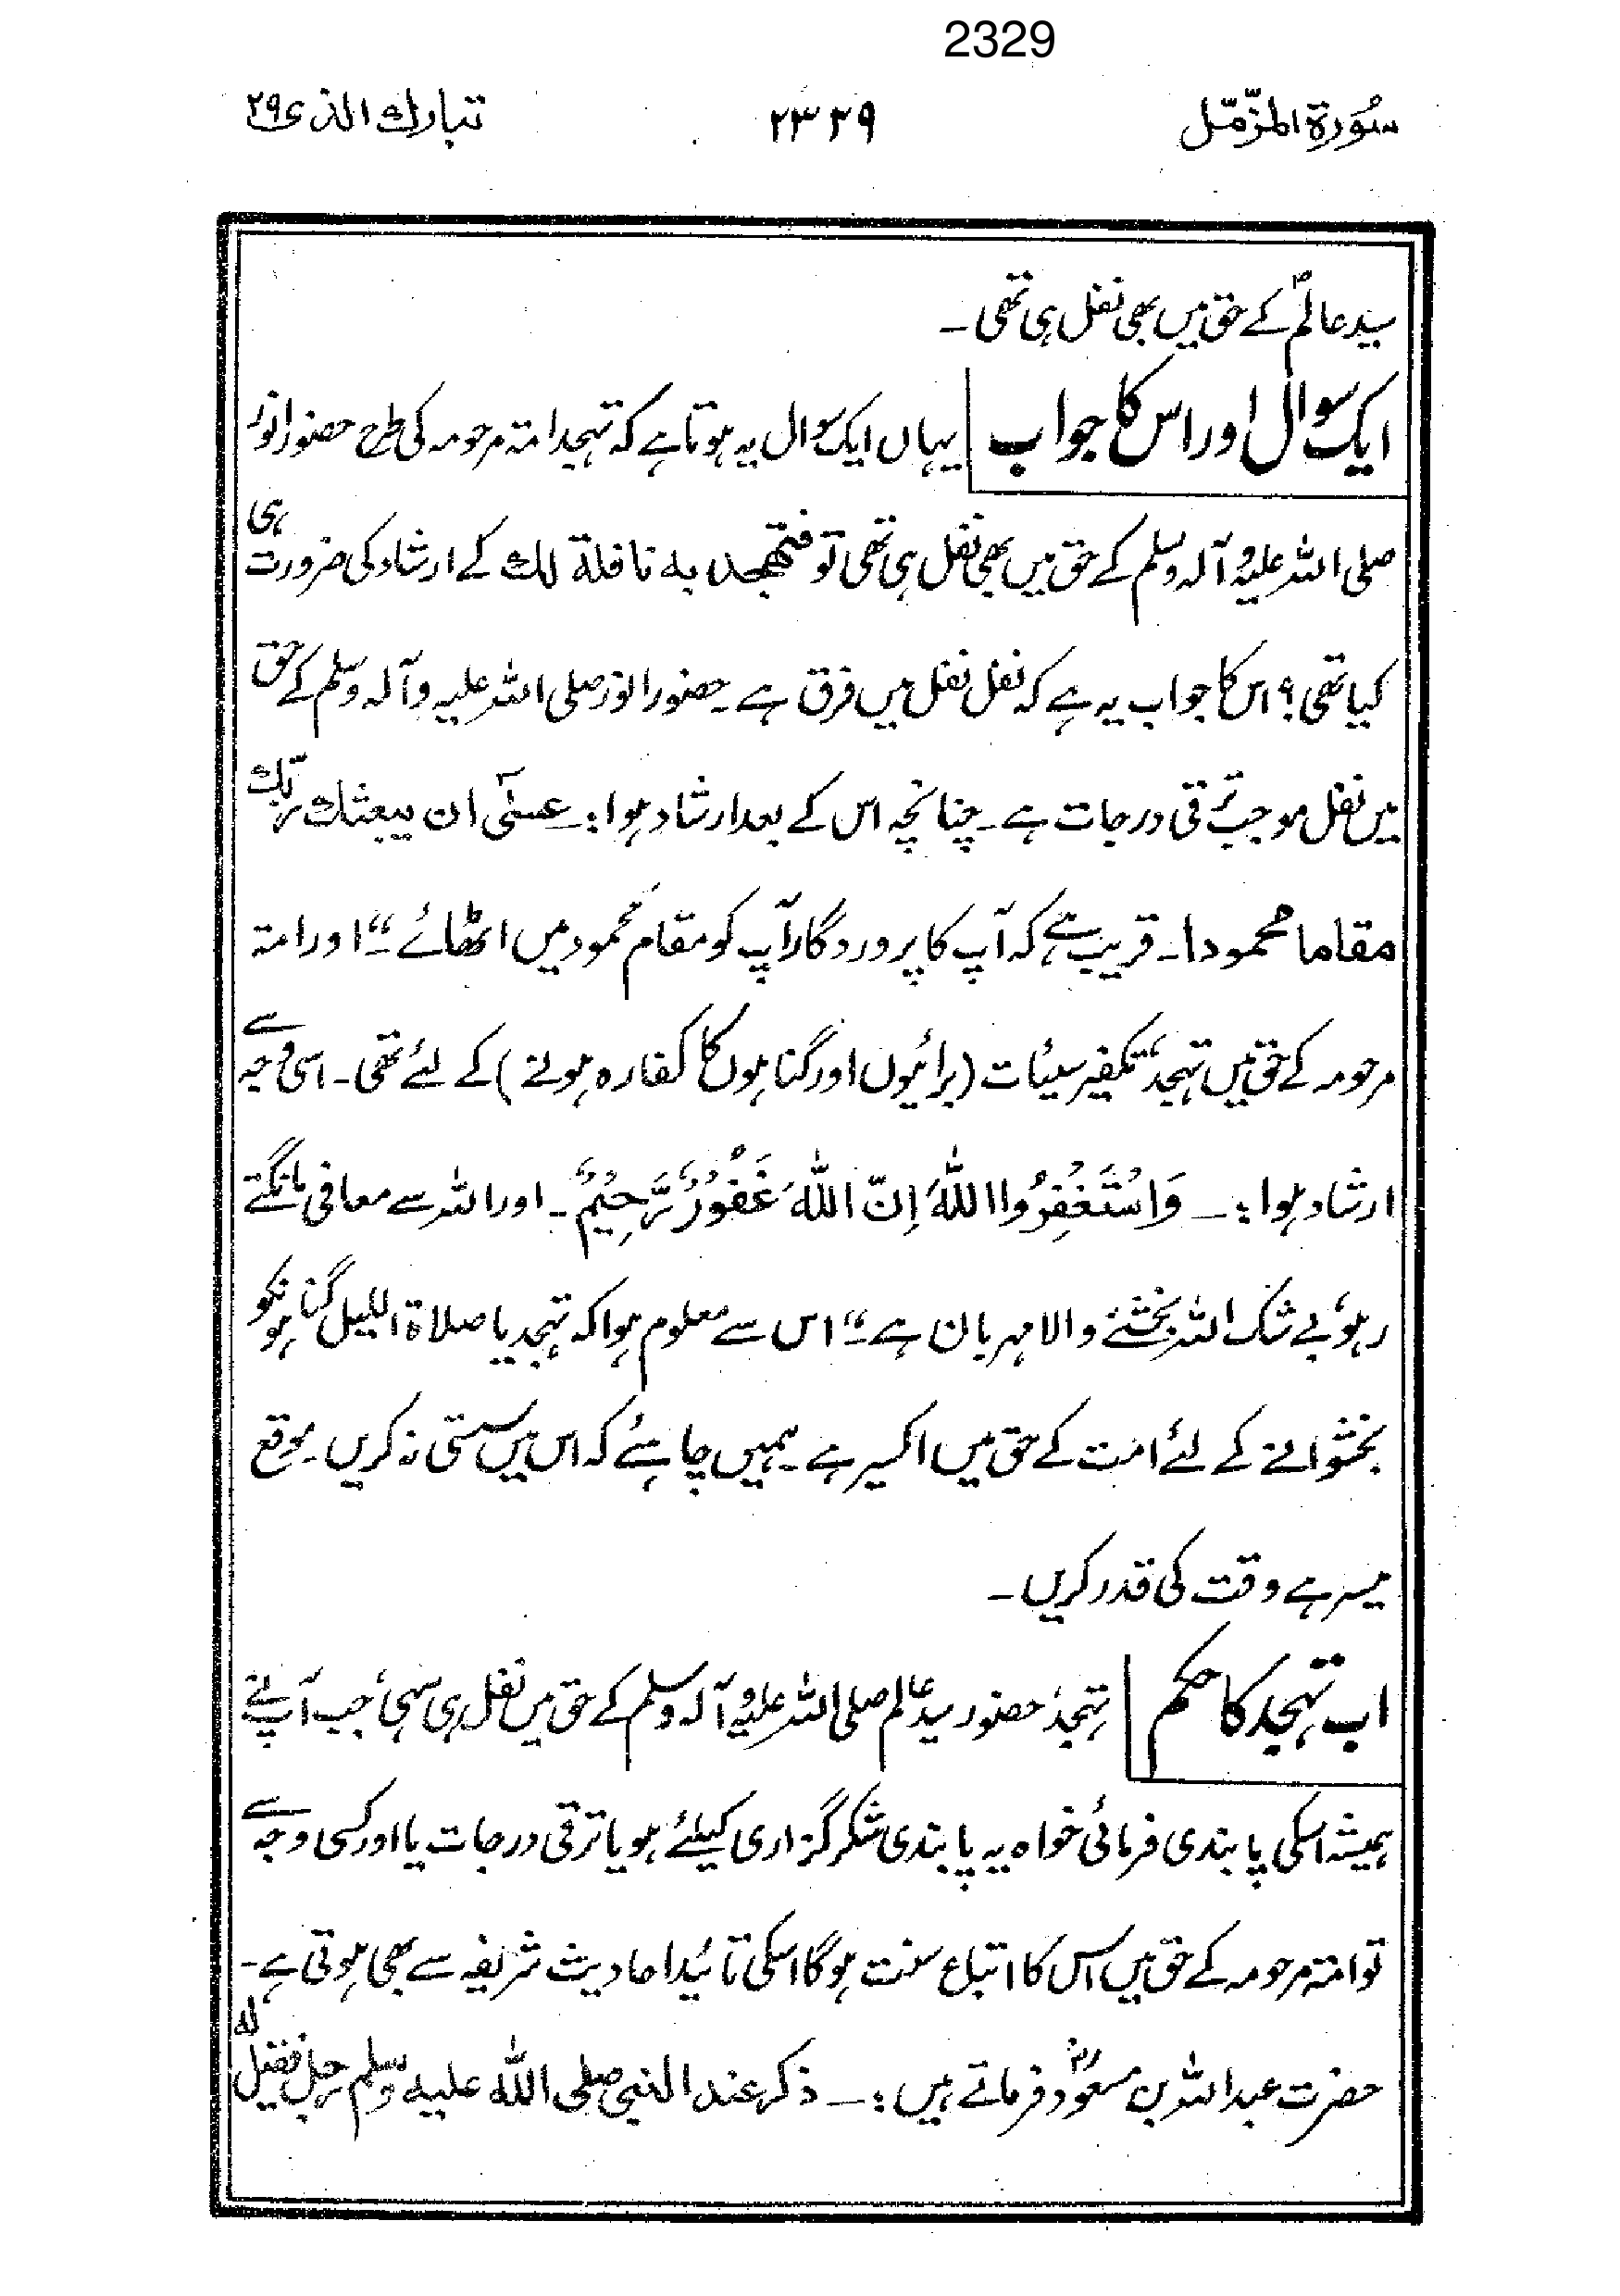 2329
سُورة المزّمّل ٢٣٢٩ تبارك الذی ٢٩
سید عالمؐ کے حق میں بھی نفل ہی تھی۔
ایک سوال اور اس کا جواب یہاں ایک سوال یہ ہوتا ہے کہ تہجد امۃ مرحومہ کی طرح حضور انور
صلی اللہ علیہ و آلہ وسلم کے حق میں بھی نفل ہی تھی تو فتهجد به نافلة لك کے ارشاد کی ضرورت ہی
کیا تھی؟ اس کا جواب یہ ہے کہ نفل نفل میں فرق ہے۔ حضور انور صلی اللہ علیہ وآلہ وسلم کے حق
میں نفل موجب ترقی درجات ہے۔ چنانچہ اس کے بعد ارشاد ہوا:۔ عسٰٓی ان یبعثك ربّك
مقاما محمودا۔ قریب ہے کہ آپ کا پروردگار آپ کو مقام محمود میں اٹھائے۔“ اور امۃ
مرحومہ کے حق میں تہجد، تکفیر سیئات (برائیوں اور گناہوں کا کفارہ ہونے) کے لئے تھی۔ اسی وجہ سے
ارشاد ہوا:۔ وَاسْتَغْفِرُوا اللّٰهَ اِنَّ اللّٰهَ غَفُوْرٌ رَّحِیْمٌ۔ اور اللہ سے معافی مانگتے
رہو، بے شک اللہ بخشنے والا مہربان ہے۔“ اس سے معلوم ہوا کہ تہجد یا صلاۃ اللیل گناہونکو
بخشوانے کے لئے امت کے حق میں اکسیر ہے۔ ہمیں چاہئے کہ اس میں سستی نہ کریں۔ موقع
میسر ہے وقت کی قدر کریں۔
اب تہجد کا حکم تہجد، حضور سید عالم صلی اللہ علیہ و آلہ وسلم کے حق میں نفل ہی سہی، جب آپ نے
ہمیشہ اسکی پابندی فرمائی خواہ یہ پابندی شکر گزاری کیلئے ہو یا ترقی درجات یا اور کسی وجہ سے
تو امۃ مرحومہ کے حق میں اس کا اتباع سنت ہوگا اسکی تائید احادیث شریفہ سے بھی ہوتی ہے۔
حضرت عبداللہ بن مسعودؓ فرماتے ہیں:۔ ذکر عند النبی صلی اللّٰه علیه وسلم رجل فقیل له